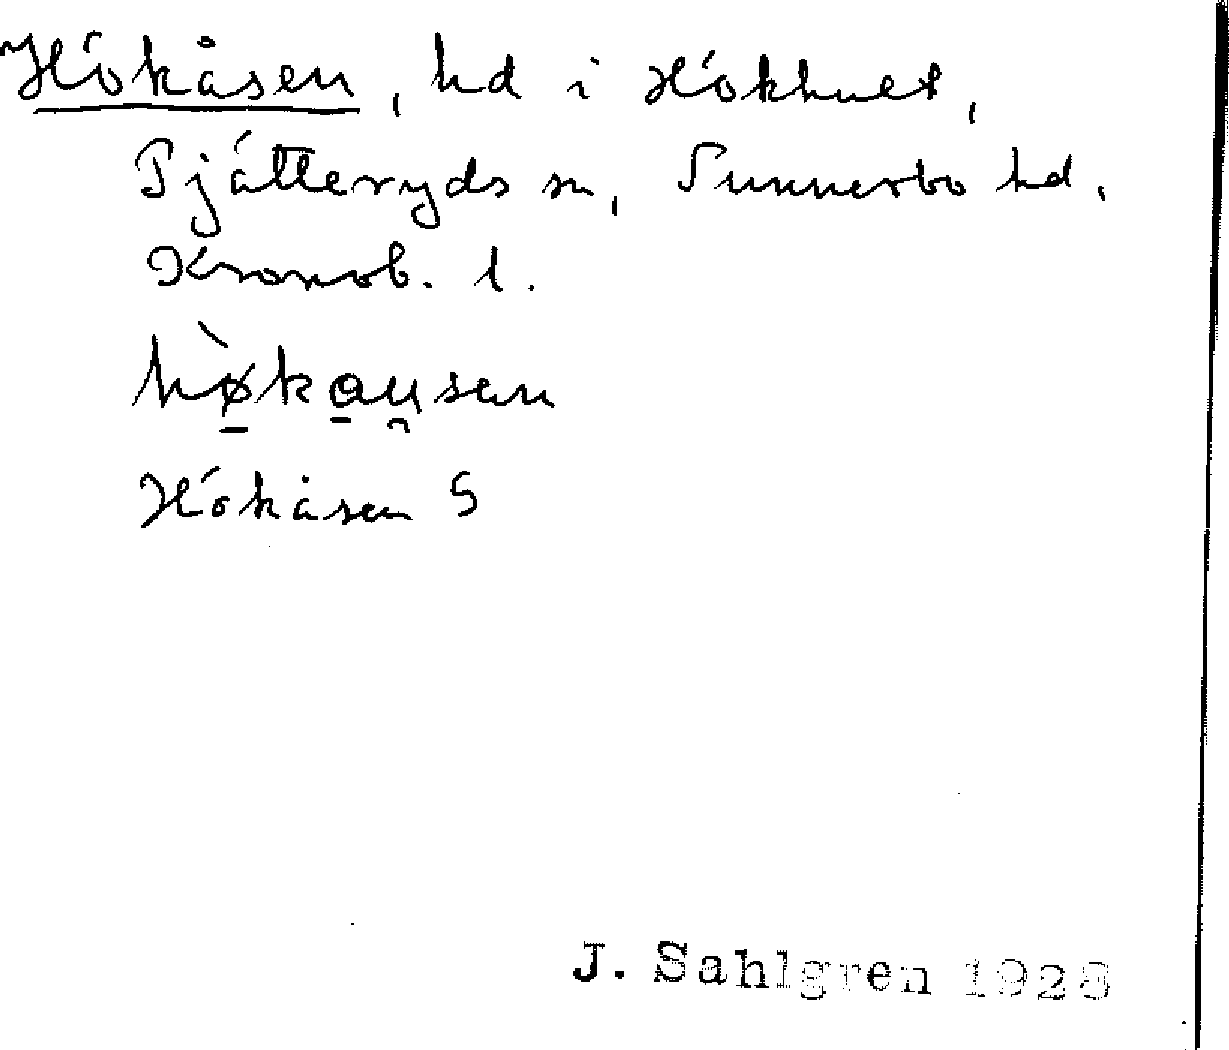 Hökåsen, hd i Hökhult,
Pjätteryds sn, Sunnerbo hd.
Kronob. l.
hø̱̀ka̱u̯sen
Hökåsen S
J. Sahlgren 1928